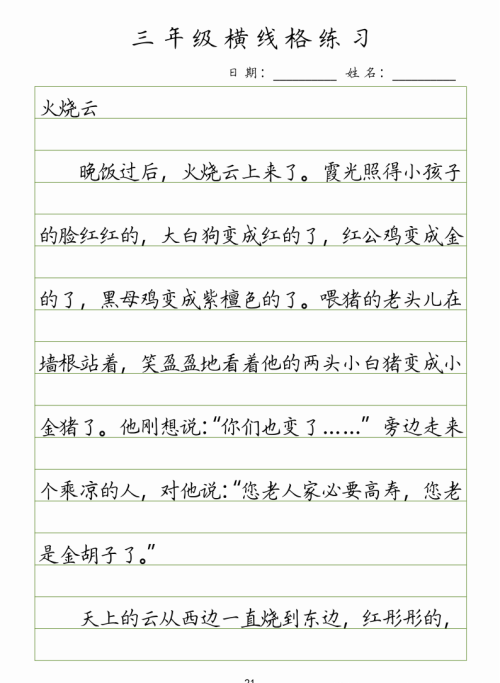 三年级横线格练习
日期：________ 姓名：________
火烧云
晚饭过后，火烧云上来了。霞光照得小孩子
的脸红红的，大白狗变成红的了，红公鸡变成金
的了，黑母鸡变成紫檀色的了。喂猪的老头儿在
墙根站着，笑盈盈地看着他的两头小白猪变成小
金猪了。他刚想说：“你们也变了……”旁边走来
个乘凉的人，对他说：“您老人家必要高寿，您老
是金胡子了。”
天上的云从西边一直烧到东边，红彤彤的，